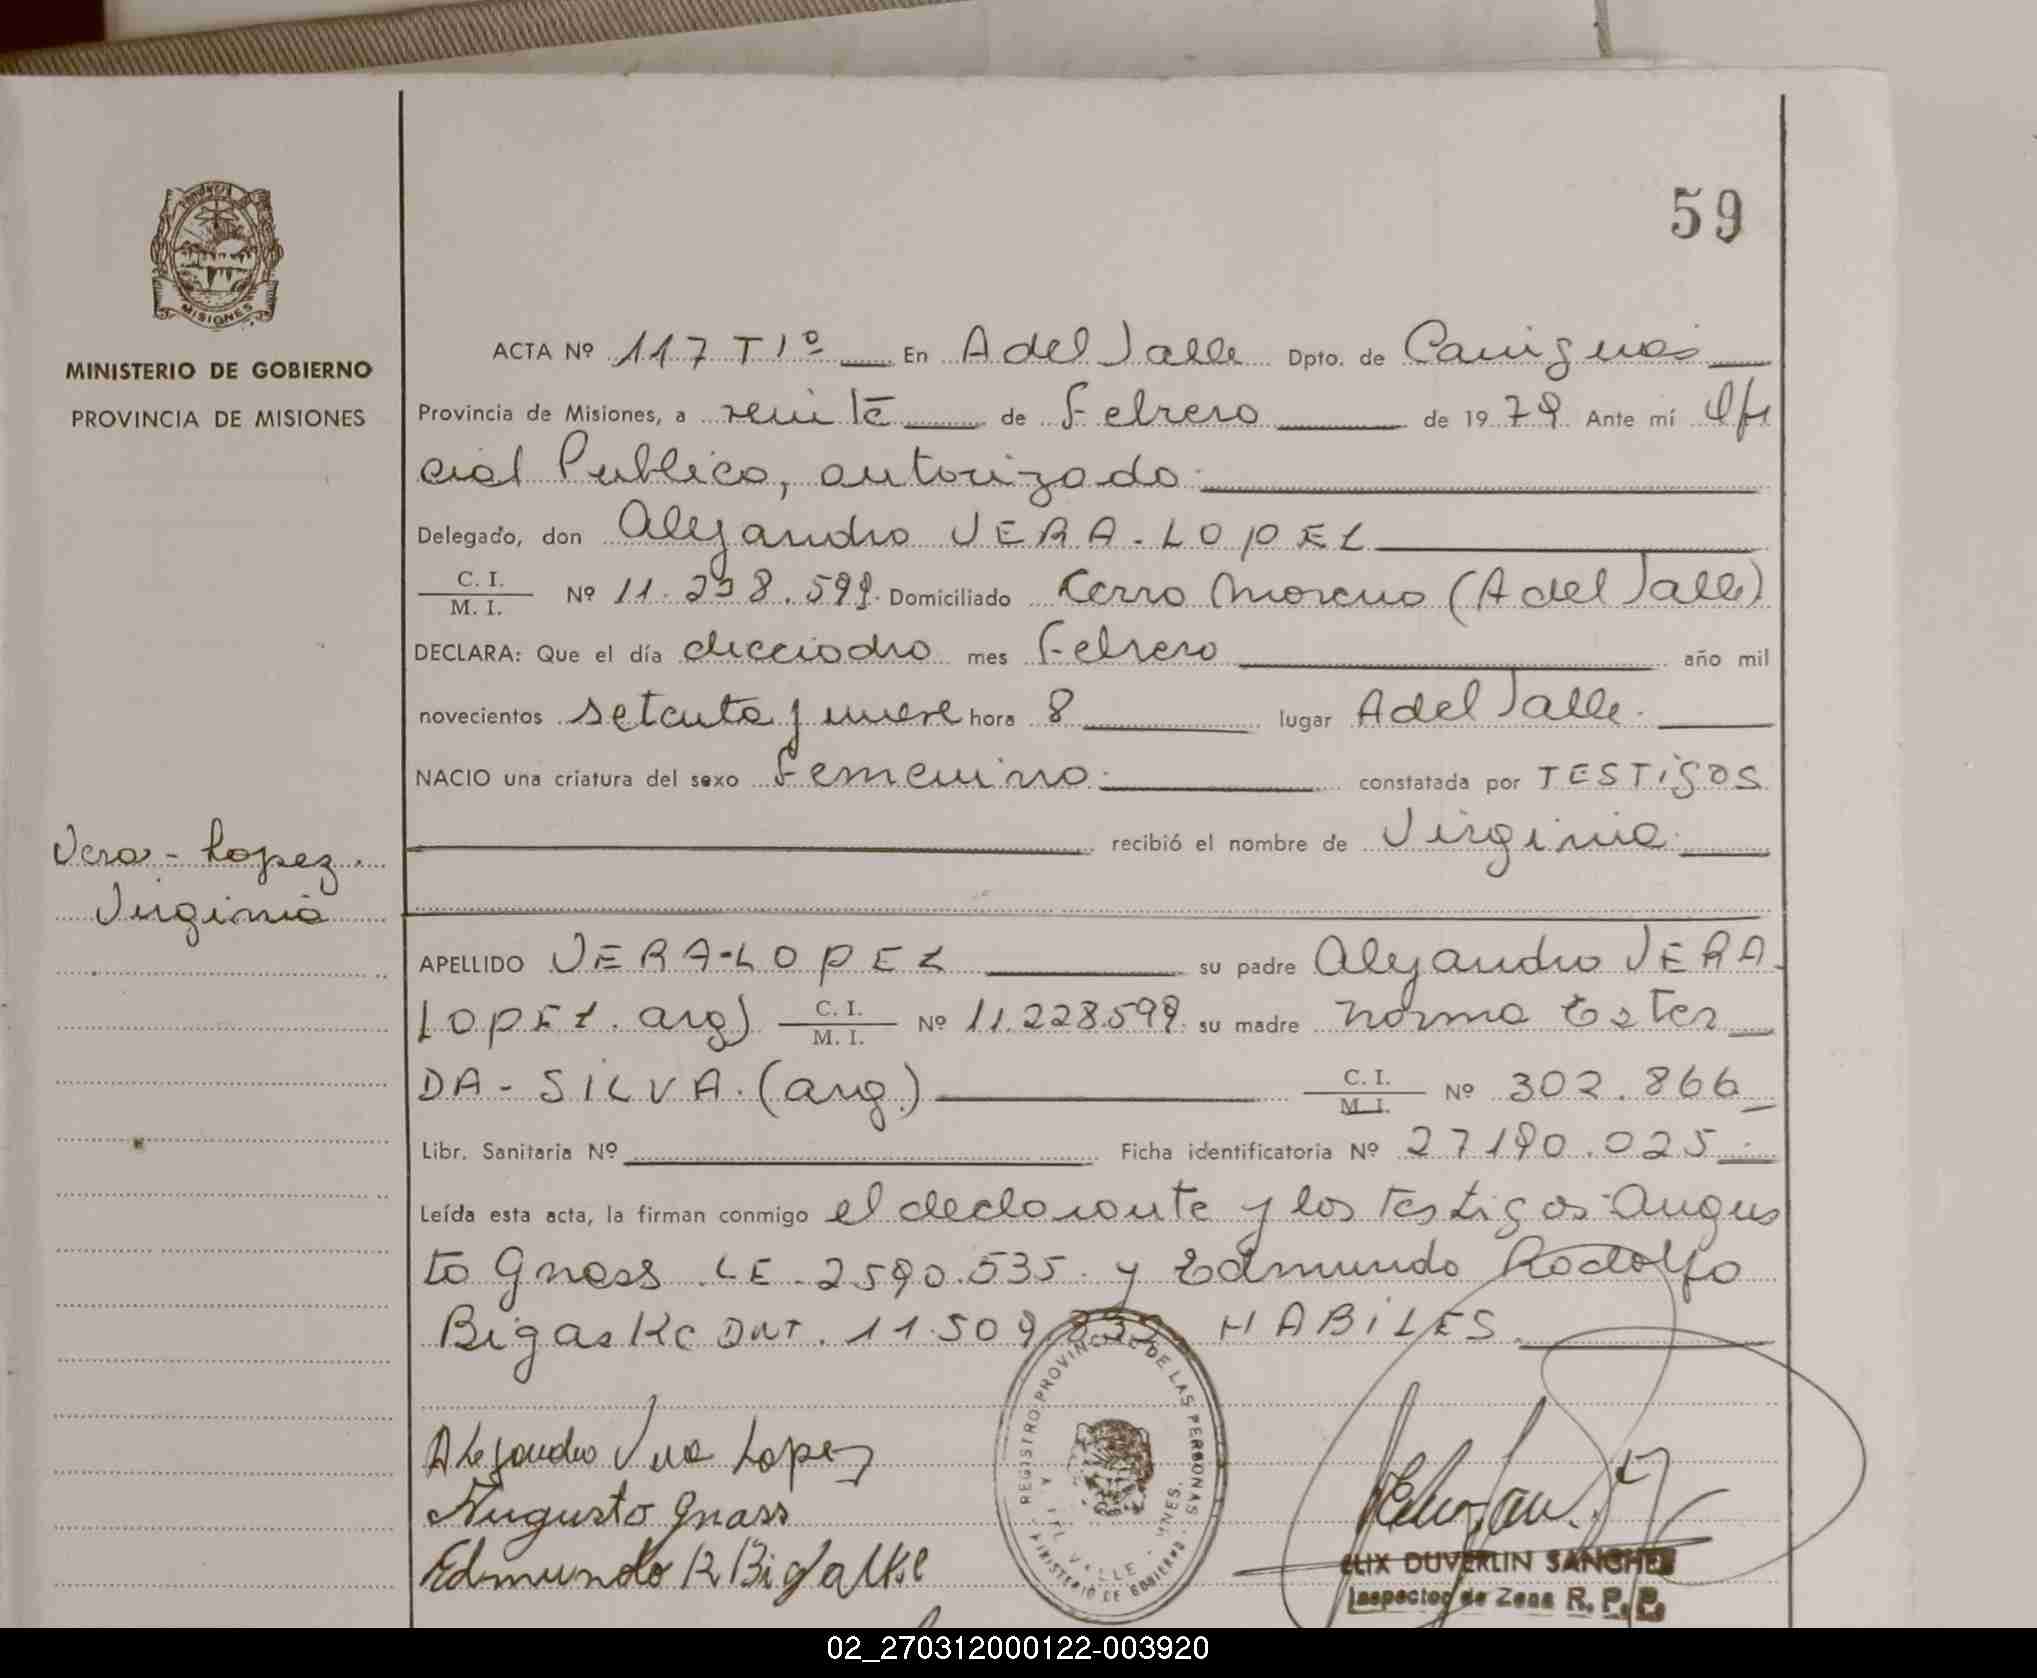 59
MISIONES
MINISTERIO DE GOBIERNO
PROVINCIA DE MISIONES
Vera - Lopez.
Virginia
ACTA Nº 117 T 1º En A del Valle Dpto. de Cainguas
Provincia de Misiones, a veinte de Febrero de 1979. Ante mí Ofi
cial Publico, autorizado
Delegado, don Alejandro VERA-LOPEZ
C. I. / M. I. Nº 11.238.599. Domiciliado Cerro Moreno (A del Valle)
DECLARA: Que el día dieciocho mes Febrero año mil
novecientos setenta y nueve hora 8 lugar A del Valle.
NACIO una criatura del sexo Femenino. constatada por TESTigos
recibió el nombre de Virginia.
APELLIDO VERA-LOPEZ su padre Alejandro VERA-
LOPEZ. arg) C. I. / M. I. Nº 11.228.599. su madre Norma Ester
DA-SILVA. (arg.) C. I. / M. I. Nº 302.866
Libr. Sanitaria Nº Ficha identificatoria Nº 27190.025
Leída esta acta, la firman conmigo el declarante y los testigos Augus
to Gnass LE. 2590.535. y Edmundo Rodolfo
Bigaske DNI. 11.509 HABILES
Alejandro Vera Lopez
Augusto Gnass
Edmundo R Bigalke
REGISTRO PROVINCIAL DE LAS PERSONAS
MINISTERIO DE GOBIERNO
VALLE - MNES.
ELIX DUVERLIN SANCHEZ
Inspector de Zona R. P. P.
02_270312000122-003920